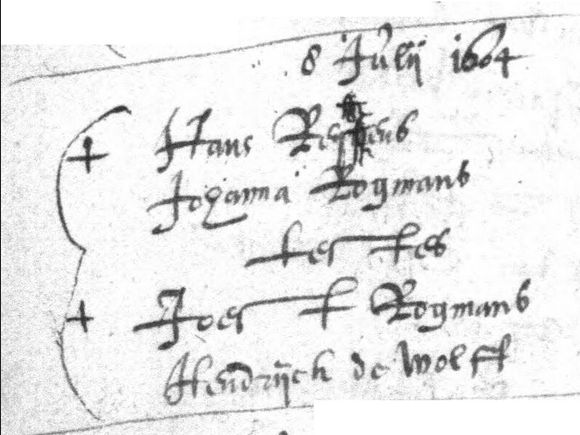 8 Julij 1604
+ Hans
Johanna Rogmans
testes
+ Joes Rogmans
Hendrijck de wolff